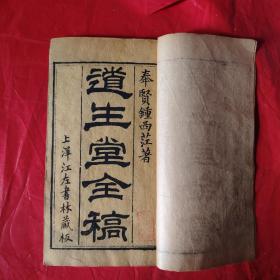 奉賢鍾西茳著
道生堂全稿
上洋江左書林藏板